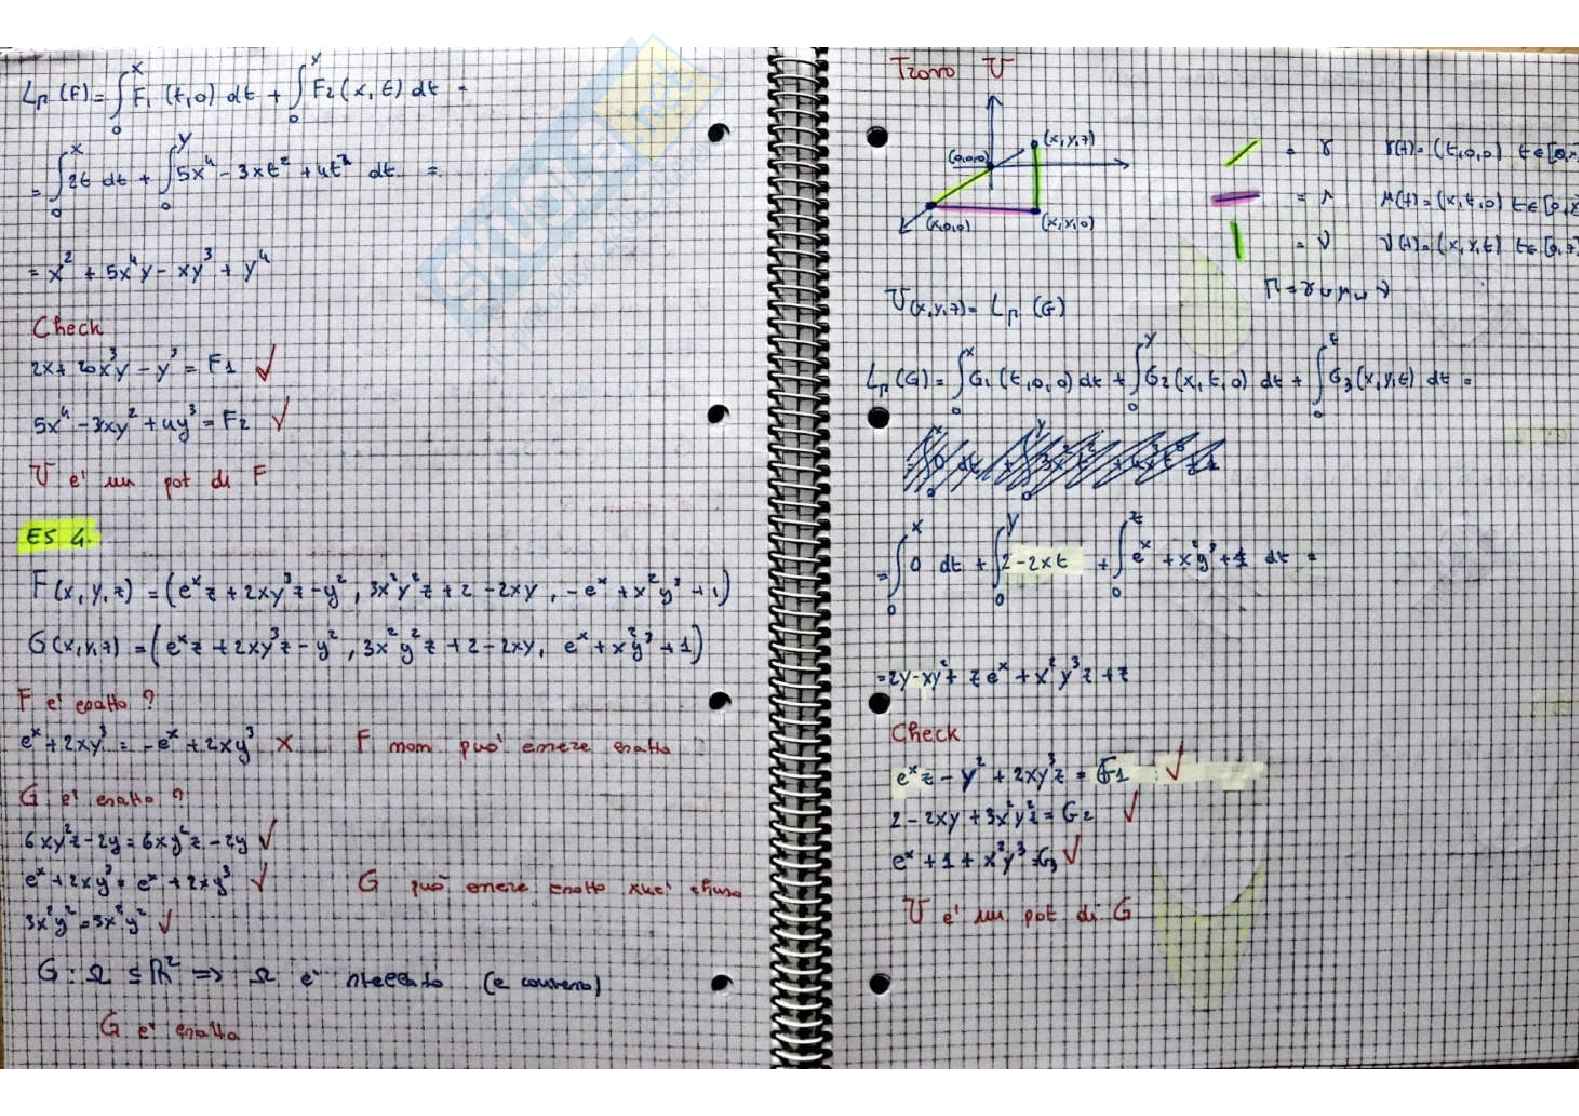 L_Γ(F) = ∫₀ˣ F₁(t,0) dt + ∫₀ʸ F₂(x,t) dt =
= ∫₀ˣ 2t dt + ∫₀ʸ 5x⁴ - 3xt² + 4t³ dt =
= x² + 5x⁴y - xy³ + y⁴
Check
2x + 20x³y - y³ = F1 ✓
5x⁴ - 3xy² + 4y³ = F2 ✓
U e' un pot di F
ES 4.
F(x,y,z) = (eˣz + 2xy³z - y², 3x²y²z + 2 - 2xy, -eˣ + x²y³ + 1)
G(x,y,z) = (eˣz + 2xy³z - y², 3x²y²z + 2 - 2xy, eˣ + x²y³ + 1)
F e' esatto ?
eˣ + 2xy³ = -eˣ + 2xy³ X F non puo' essere esatto
G e' esatto ?
6xy²z - 2y = 6xy²z - 2y ✓
eˣ + 2xy³ = eˣ + 2xy³ ✓ G può essere esatto
3x²y² = 3x²y² ✓
G: Ω ⊆ ℝ² => Ω e' stellato (e convesso)
G e' esatto
Trovo U
(x,y,z)
(0,0,0)
(x,0,0) (x,y,0)
= γ γ(t) = (t,0,0) t∈[0,x
= μ μ(t) = (x,t,0) t∈[0,y
= ν ν(t) = (x,y,t) t∈[0,z
Γ = γ ∪ μ ∪ ν
U(x,y,z) = L_Γ(G)
L_Γ(G) = ∫₀ˣ G₁(t,0,0) dt + ∫₀ʸ G₂(x,t,0) dt + ∫₀ᶻ G₃(x,y,t) dt =
= ∫₀ˣ 0 dt + ∫₀ʸ 2 - 2xt + ∫₀ᶻ eˣ + x²y³ + 1 dt =
= 2y - xy² + zeˣ + x²y³z + z
Check
eˣz - y² + 2xy³z = G1 ✓
2 - 2xy + 3x²y²z = G2 ✓
eˣ + 1 + x²y³ = G3 ✓
U e' un pot di G